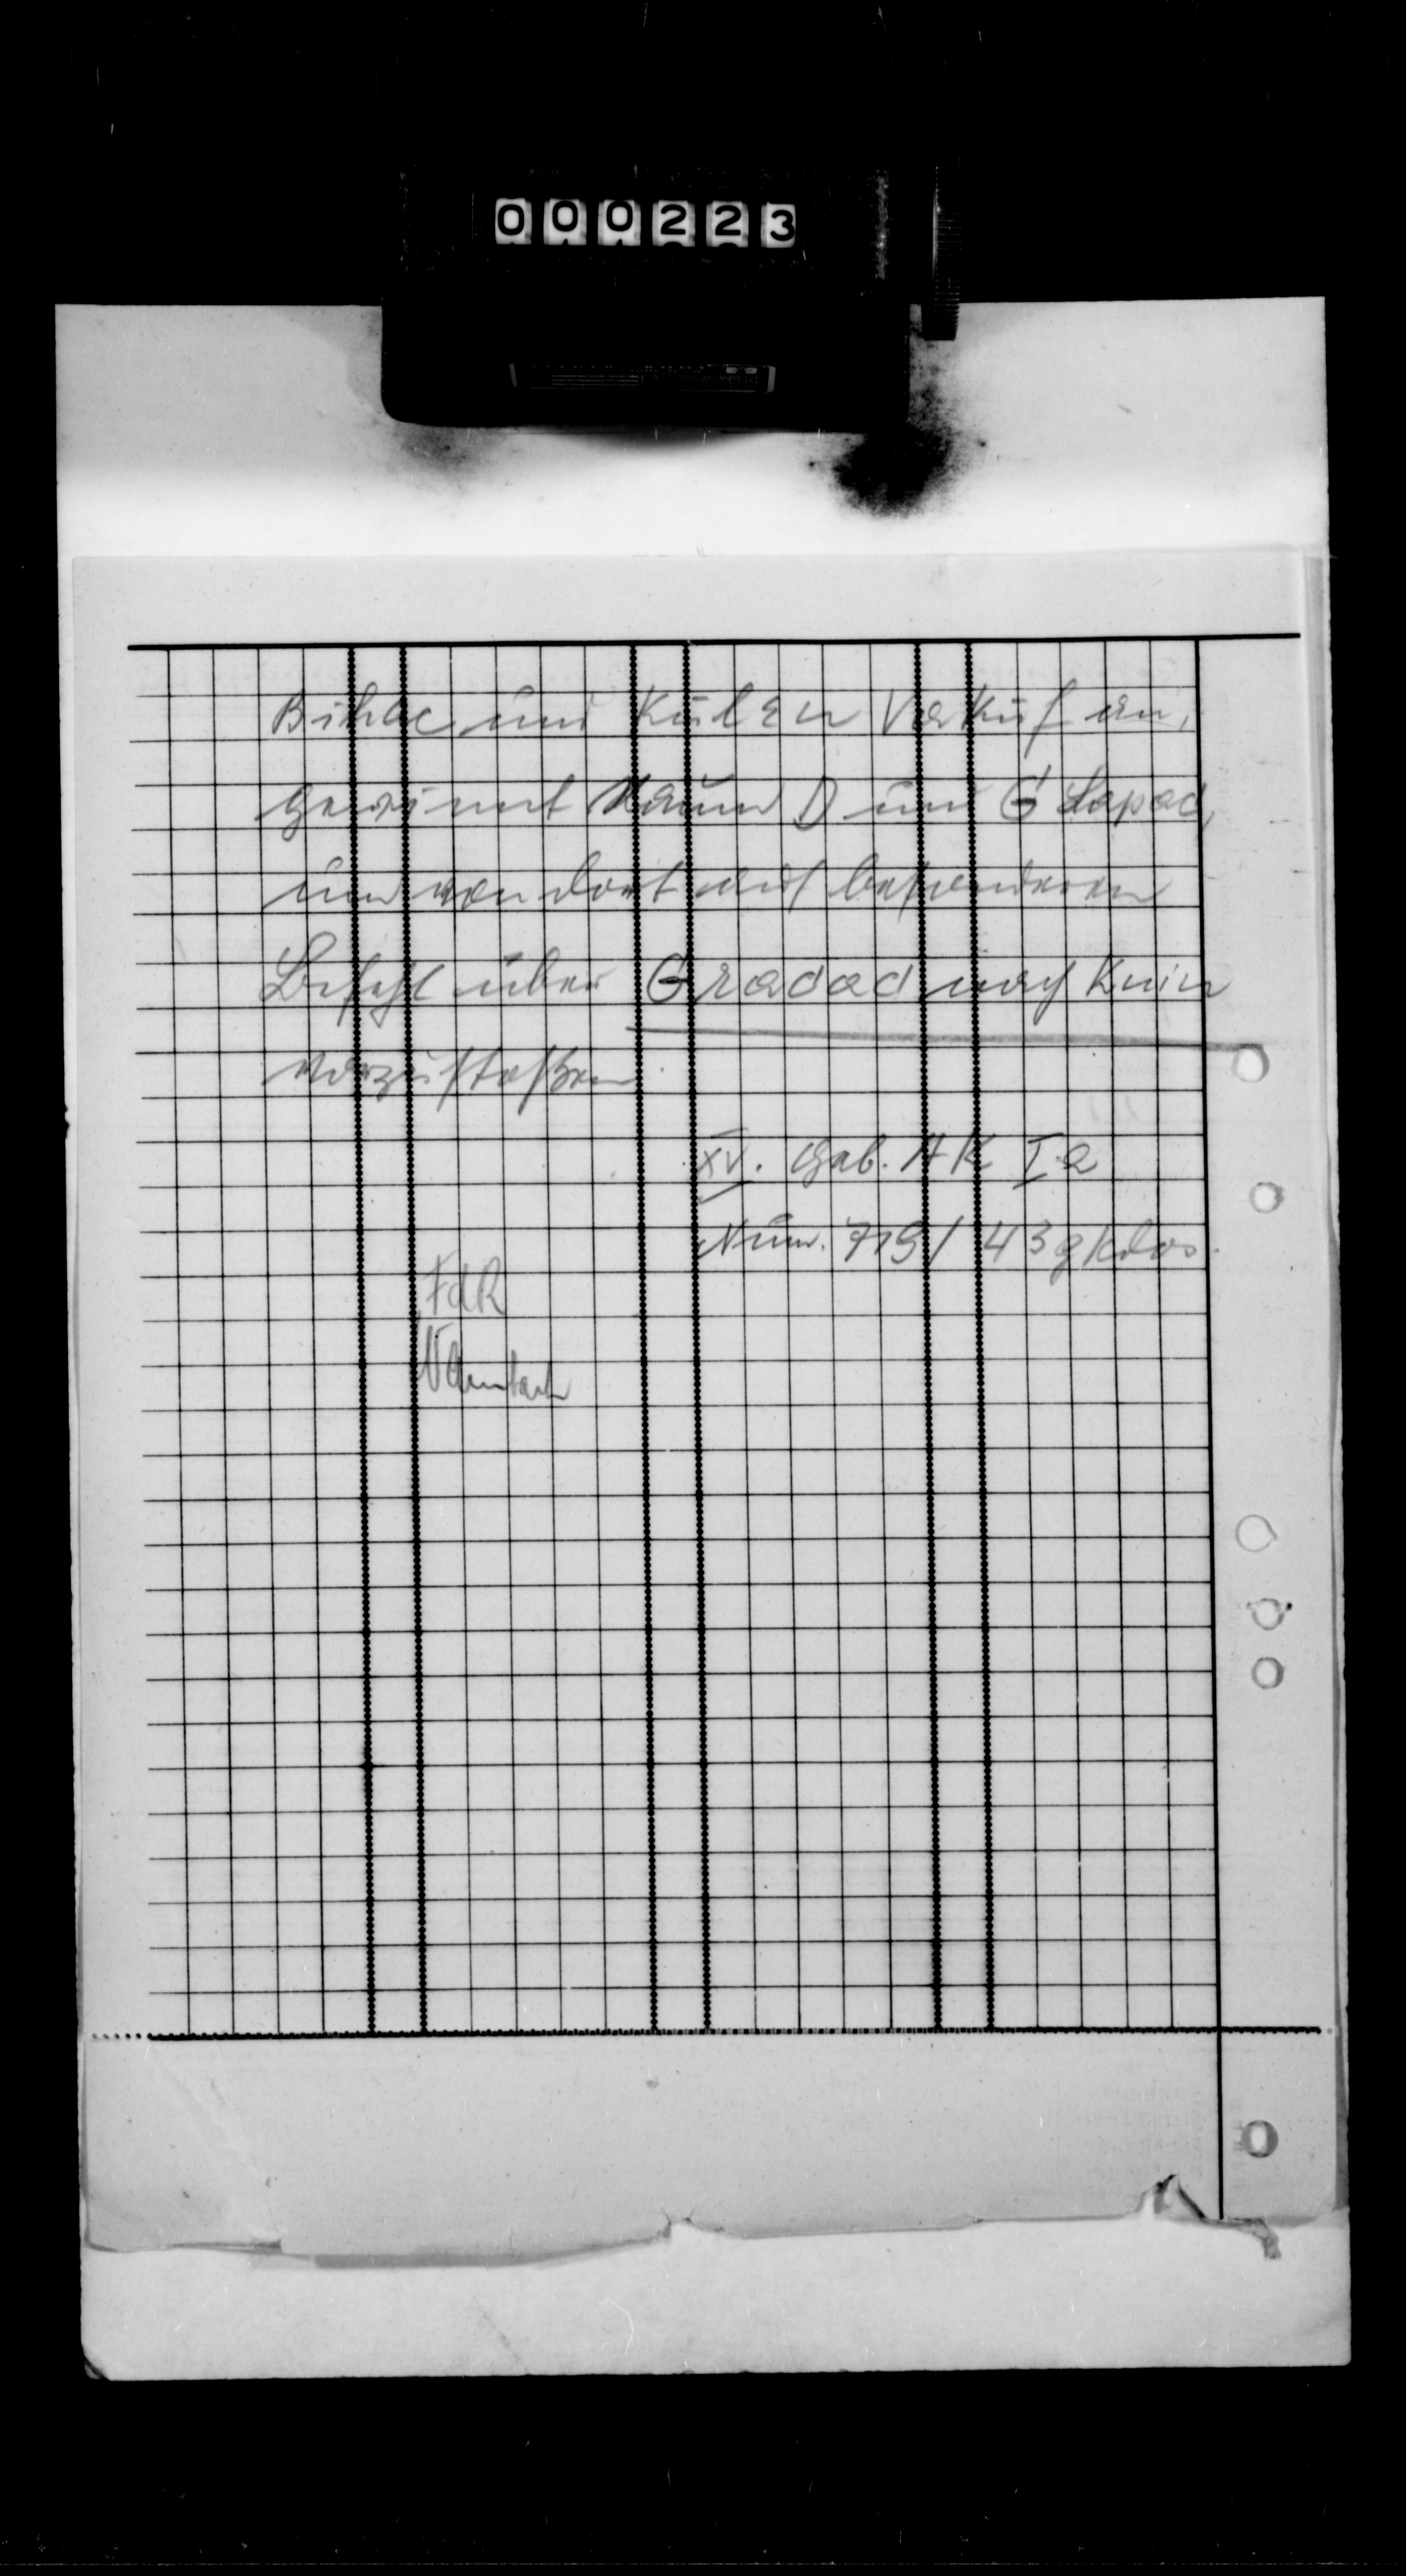 000223
Bihac und Kulen Vakuf an,
gewinnt Raum D und G Lapac,
um von dort auf besonderen
Befehl über Gradac nach Knin
vorzustoßen.
XV. Geb. AK Ia
Num. 719/43 gKdos.
FdR